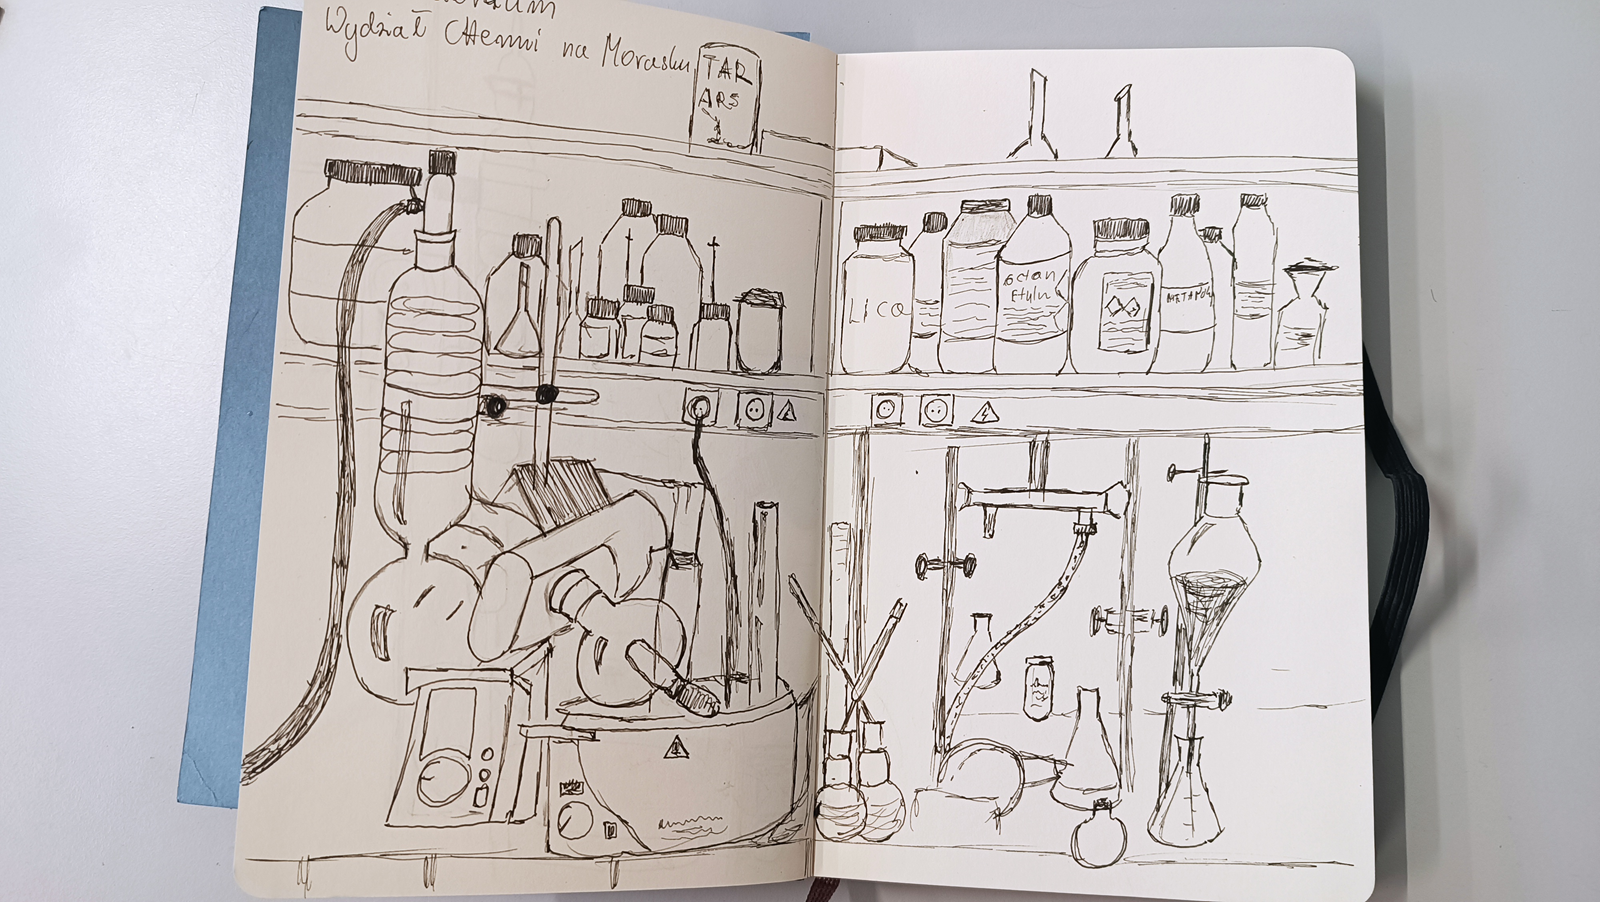 Wydział Chemii na Morasku
TAR
ARS
LICO
octan
Etylu
METANOL